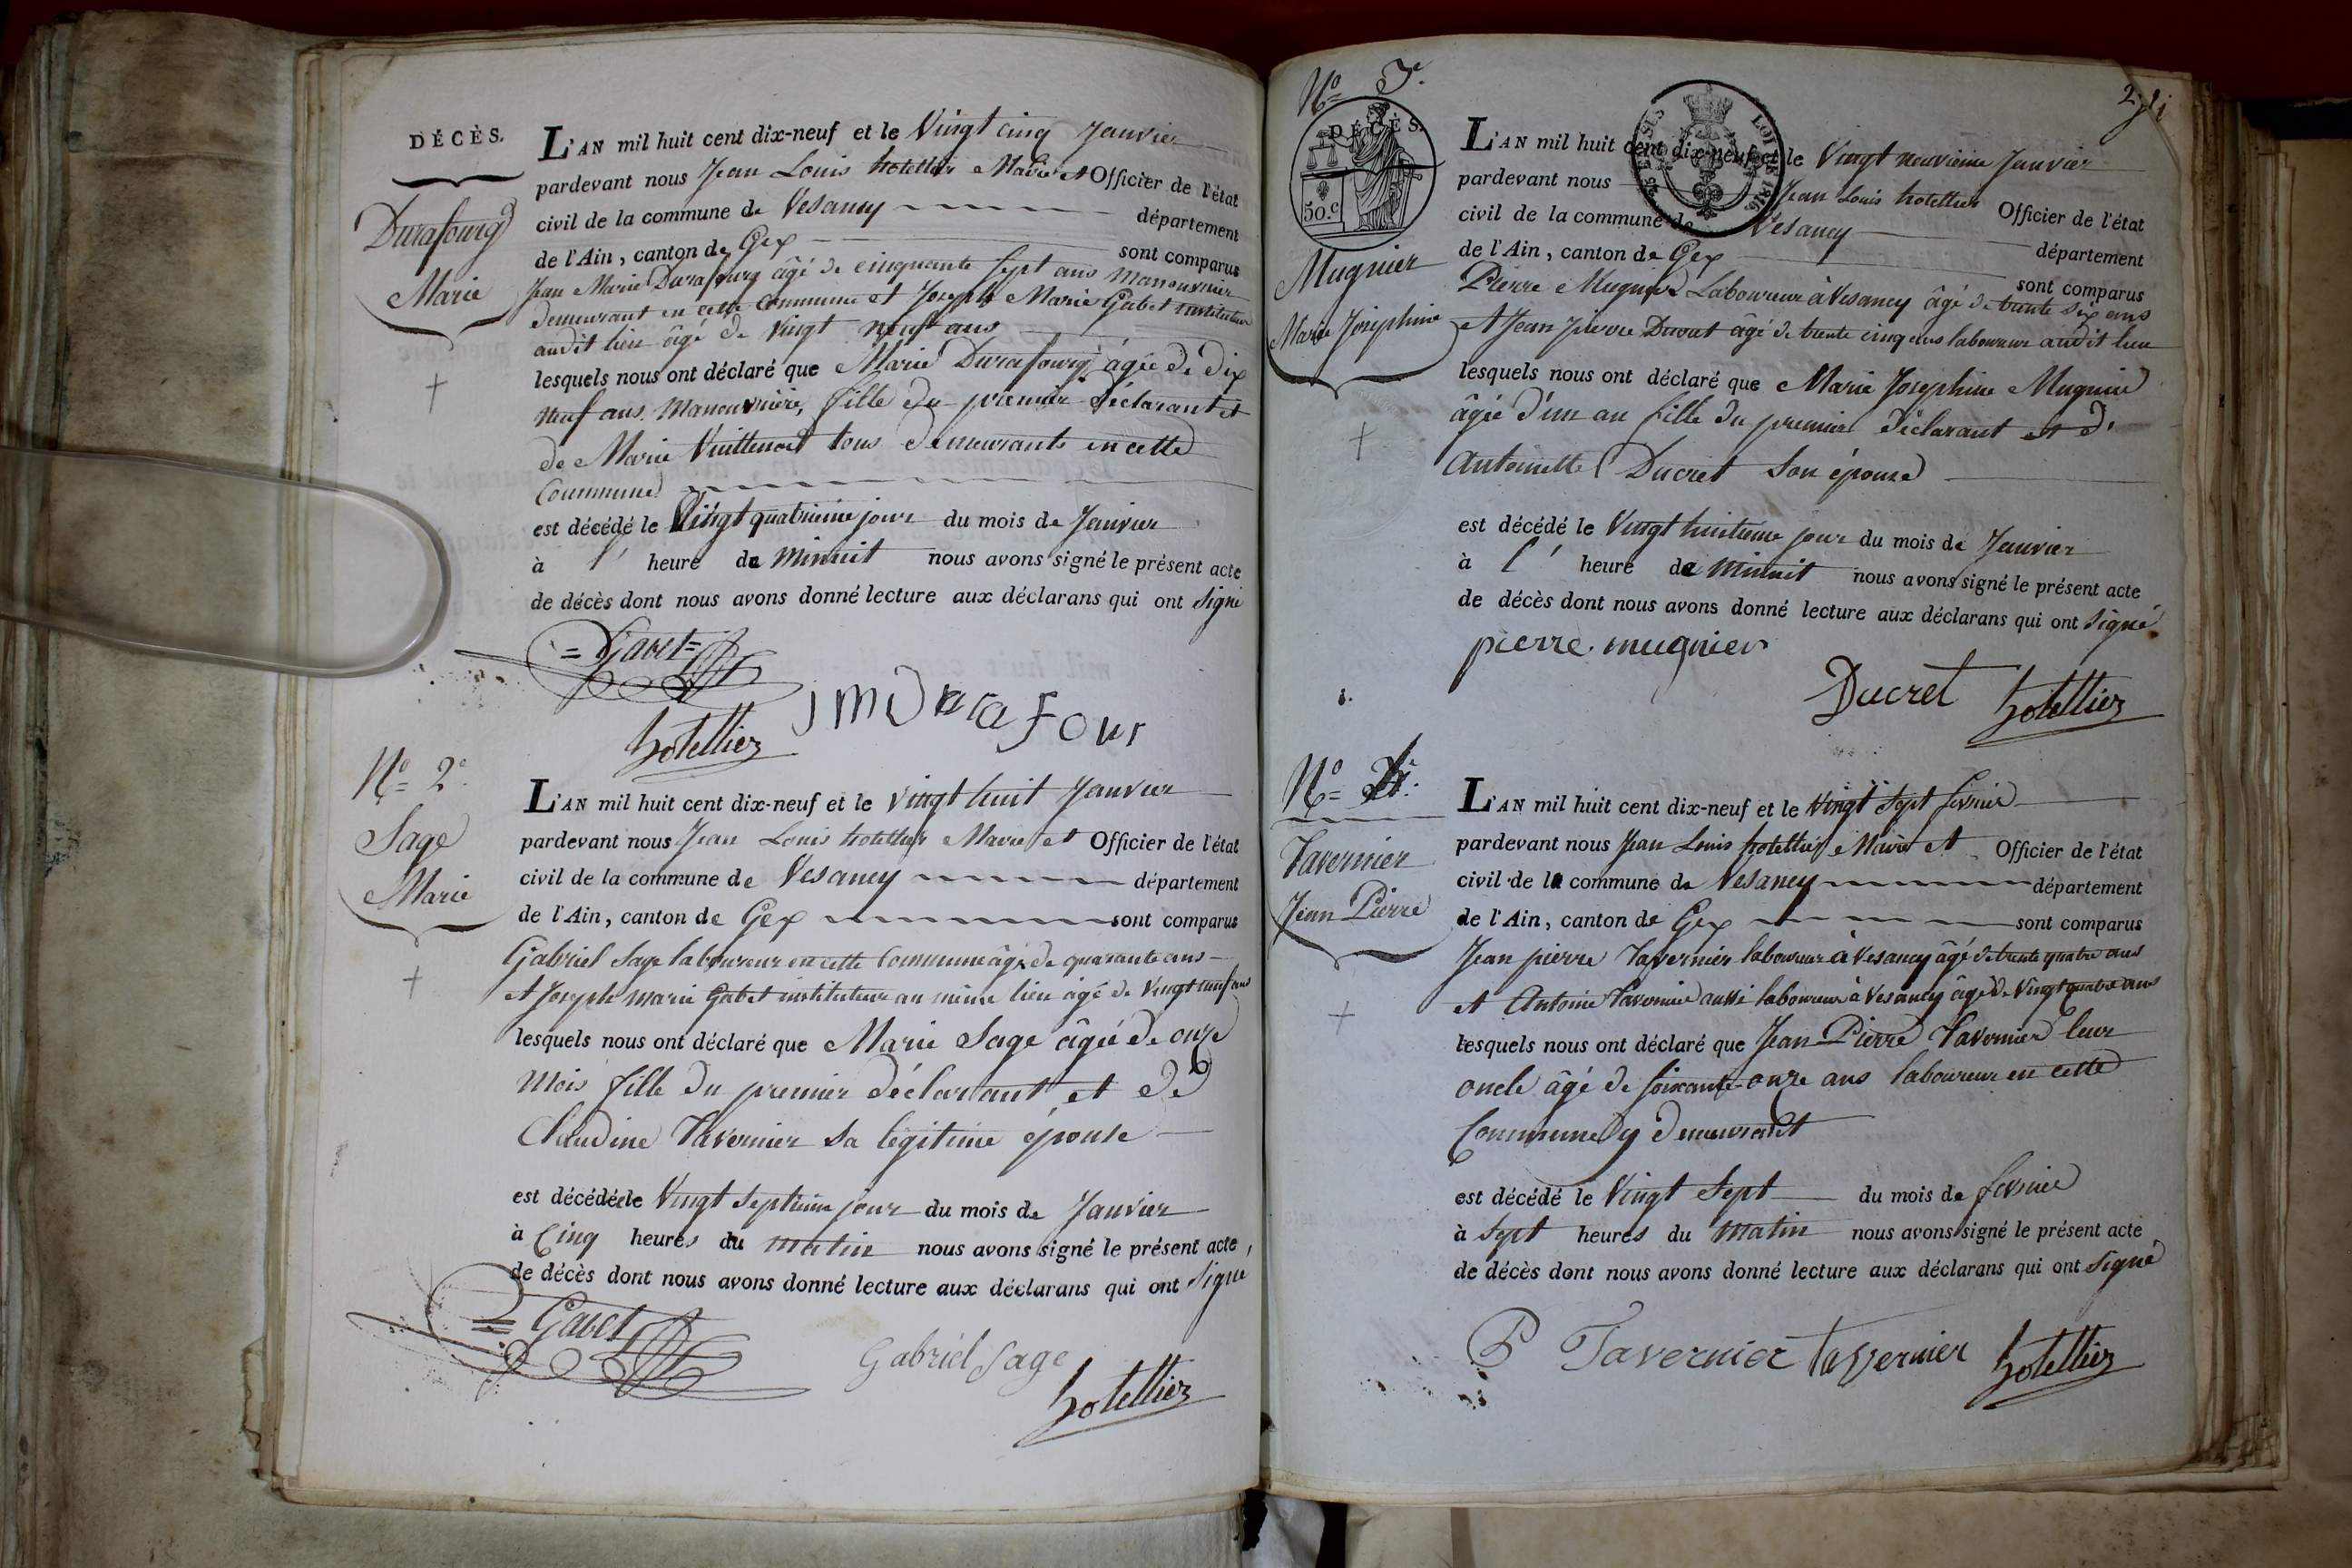 DÉCÈS.
Durafourg
Marie
L'AN mil huit cent dix-neuf et le Vingt cinq Janvier
pardevant nous Jean Louis hotellier Maire et Officier de l'état
civil de la commune de Vesancy département
de l'Ain, canton de Gex sont comparus
Jean Marie Durafourg âgé de cinquante sept ans Manouvrier
demeurant en cette Commune et Joseph Marie Gabet instituteur
audit lieu âgé de Vingt neuf ans
lesquels nous ont déclaré que Marie Durafourg âgée de dix
neuf ans Manouvrière, fille du premier déclarant et
de Marie tous demeurants en cette
Commune
est décédé le Vingt quatrieme jour du mois de Janvier
à l' heure de Minuit nous avons signé le présent acte
de décès dont nous avons donné lecture aux déclarans qui ont signé
= Gavet =
hotellier
J M DuraFour
No 2e
Sage
Marie
L'AN mil huit cent dix-neuf et le vingt huit Janvier
pardevant nous Jean Louis hotellier Maire et Officier de l'état
civil de la commune de Vesancy département
de l'Ain, canton de Gex sont comparus
Gabriel Sage laboureur en cette Commune âgé de quarante ans
et Joseph Marie Gabet instituteur au même lieu âgé de Vingt neuf ans
lesquels nous ont déclaré que Marie Sage âgée de onze
Mois fille du premier déclarant et de
Claudine Tavernier sa légitime épouse
est décédée le Vingt Septieme jour du mois de Janvier
à Cinq heures du matin nous avons signé le présent acte,
de décès dont nous avons donné lecture aux déclarans qui ont signé
= Gavet
Gabriel Sage
hotellier
No 3e
2
DÉCÈS.
50.c
LOI DE 1816
Mugnier
Marie Joséphine
L'AN mil huit cent dix-neuf et le Vingt neuvieme Janvier
pardevant nous Jean Louis hotellier Officier de l'état
civil de la commune de Vesancy département
de l'Ain, canton de Gex sont comparus
Pierre Mugnier Laboureur à Vesancy âgé de trente six ans
et Jean pierre Ducret âgé de trente cinq ans laboureur audit lieu
lesquels nous ont déclaré que Marie Joséphine Mugnier
âgée d'un an fille du premier déclarant et d'
Antoinette Ducret Son épouse
est décédé le Vingt huitieme jour du mois de Janvier
à l' heure de Minuit nous avons signé le présent acte
de décès dont nous avons donné lecture aux déclarans qui ont Signé
pierre. mugnier
Ducret hotellier
No
Tavernier
Jean Pierre
L'AN mil huit cent dix-neuf et le Vingt Sept fevrier
pardevant nous Jean Louis hotellier Maire et Officier de l'état
civil de la commune de Vesancy département
de l'Ain, canton de Gex sont comparus
Jean pierre Tavernier laboureur à Vesancy âgé de trente quatre ans
et Antoine Tavernier aussi laboureur à Vesancy âgé de Vingt quatre ans
lesquels nous ont déclaré que Jean Pierre Tavernier leur
oncle âgé de soixante-onze ans laboureur en cette
Commune y demeurant
est décédé le Vingt Sept du mois de fevrier
à Sept heures du Matin nous avons signé le présent acte
de décès dont nous avons donné lecture aux déclarans qui ont Signé
P Tavernier tavernier hotellier